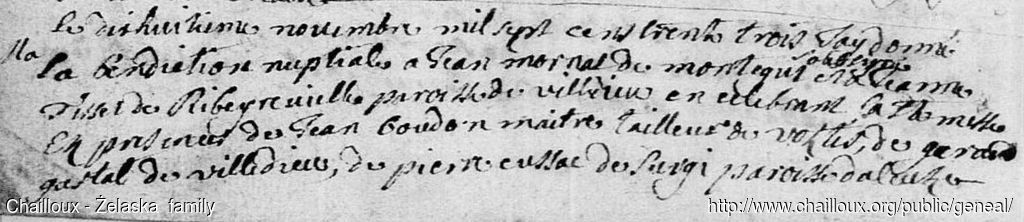 le dixhuitieme novembre mil sept cens trente trois Jay donné
la bendiction nuptiale a Jean mornat de montegut et a Jeanne
Tisset de Ribeyrevielle paroisse de villedieu en celebrant la Ste messe
En presences de Jean boudon maitre tailleur de voltis, de gerard
gastal de villedieu, de pierre cussac de surgi paroisse daleuze
Chailloux - Želaska family
http://www.chailloux.org/public/geneal/